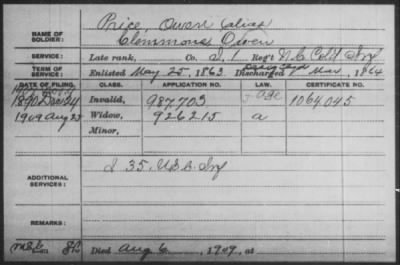 NAME OF SOLDIER: Price, Owen (alias
Clemmons, Owen
SERVICE: Late rank, Co. I, 1 Reg't N.C. Col'd Inf
TERM OF SERVICE: Enlisted May 25, 1863 Discharged Mar, 1864
DATE OF FILING. CLASS. APPLICATION NO. LAW. CERTIFICATE NO.
1890 Dec 24 Invalid, 987703 age 1064045
1909 Aug 23 Widow, 926215 a
Minor,
ADDITIONAL SERVICES: I 35. U.S.C. Inf
REMARKS:
Died Aug 6, 1909, at